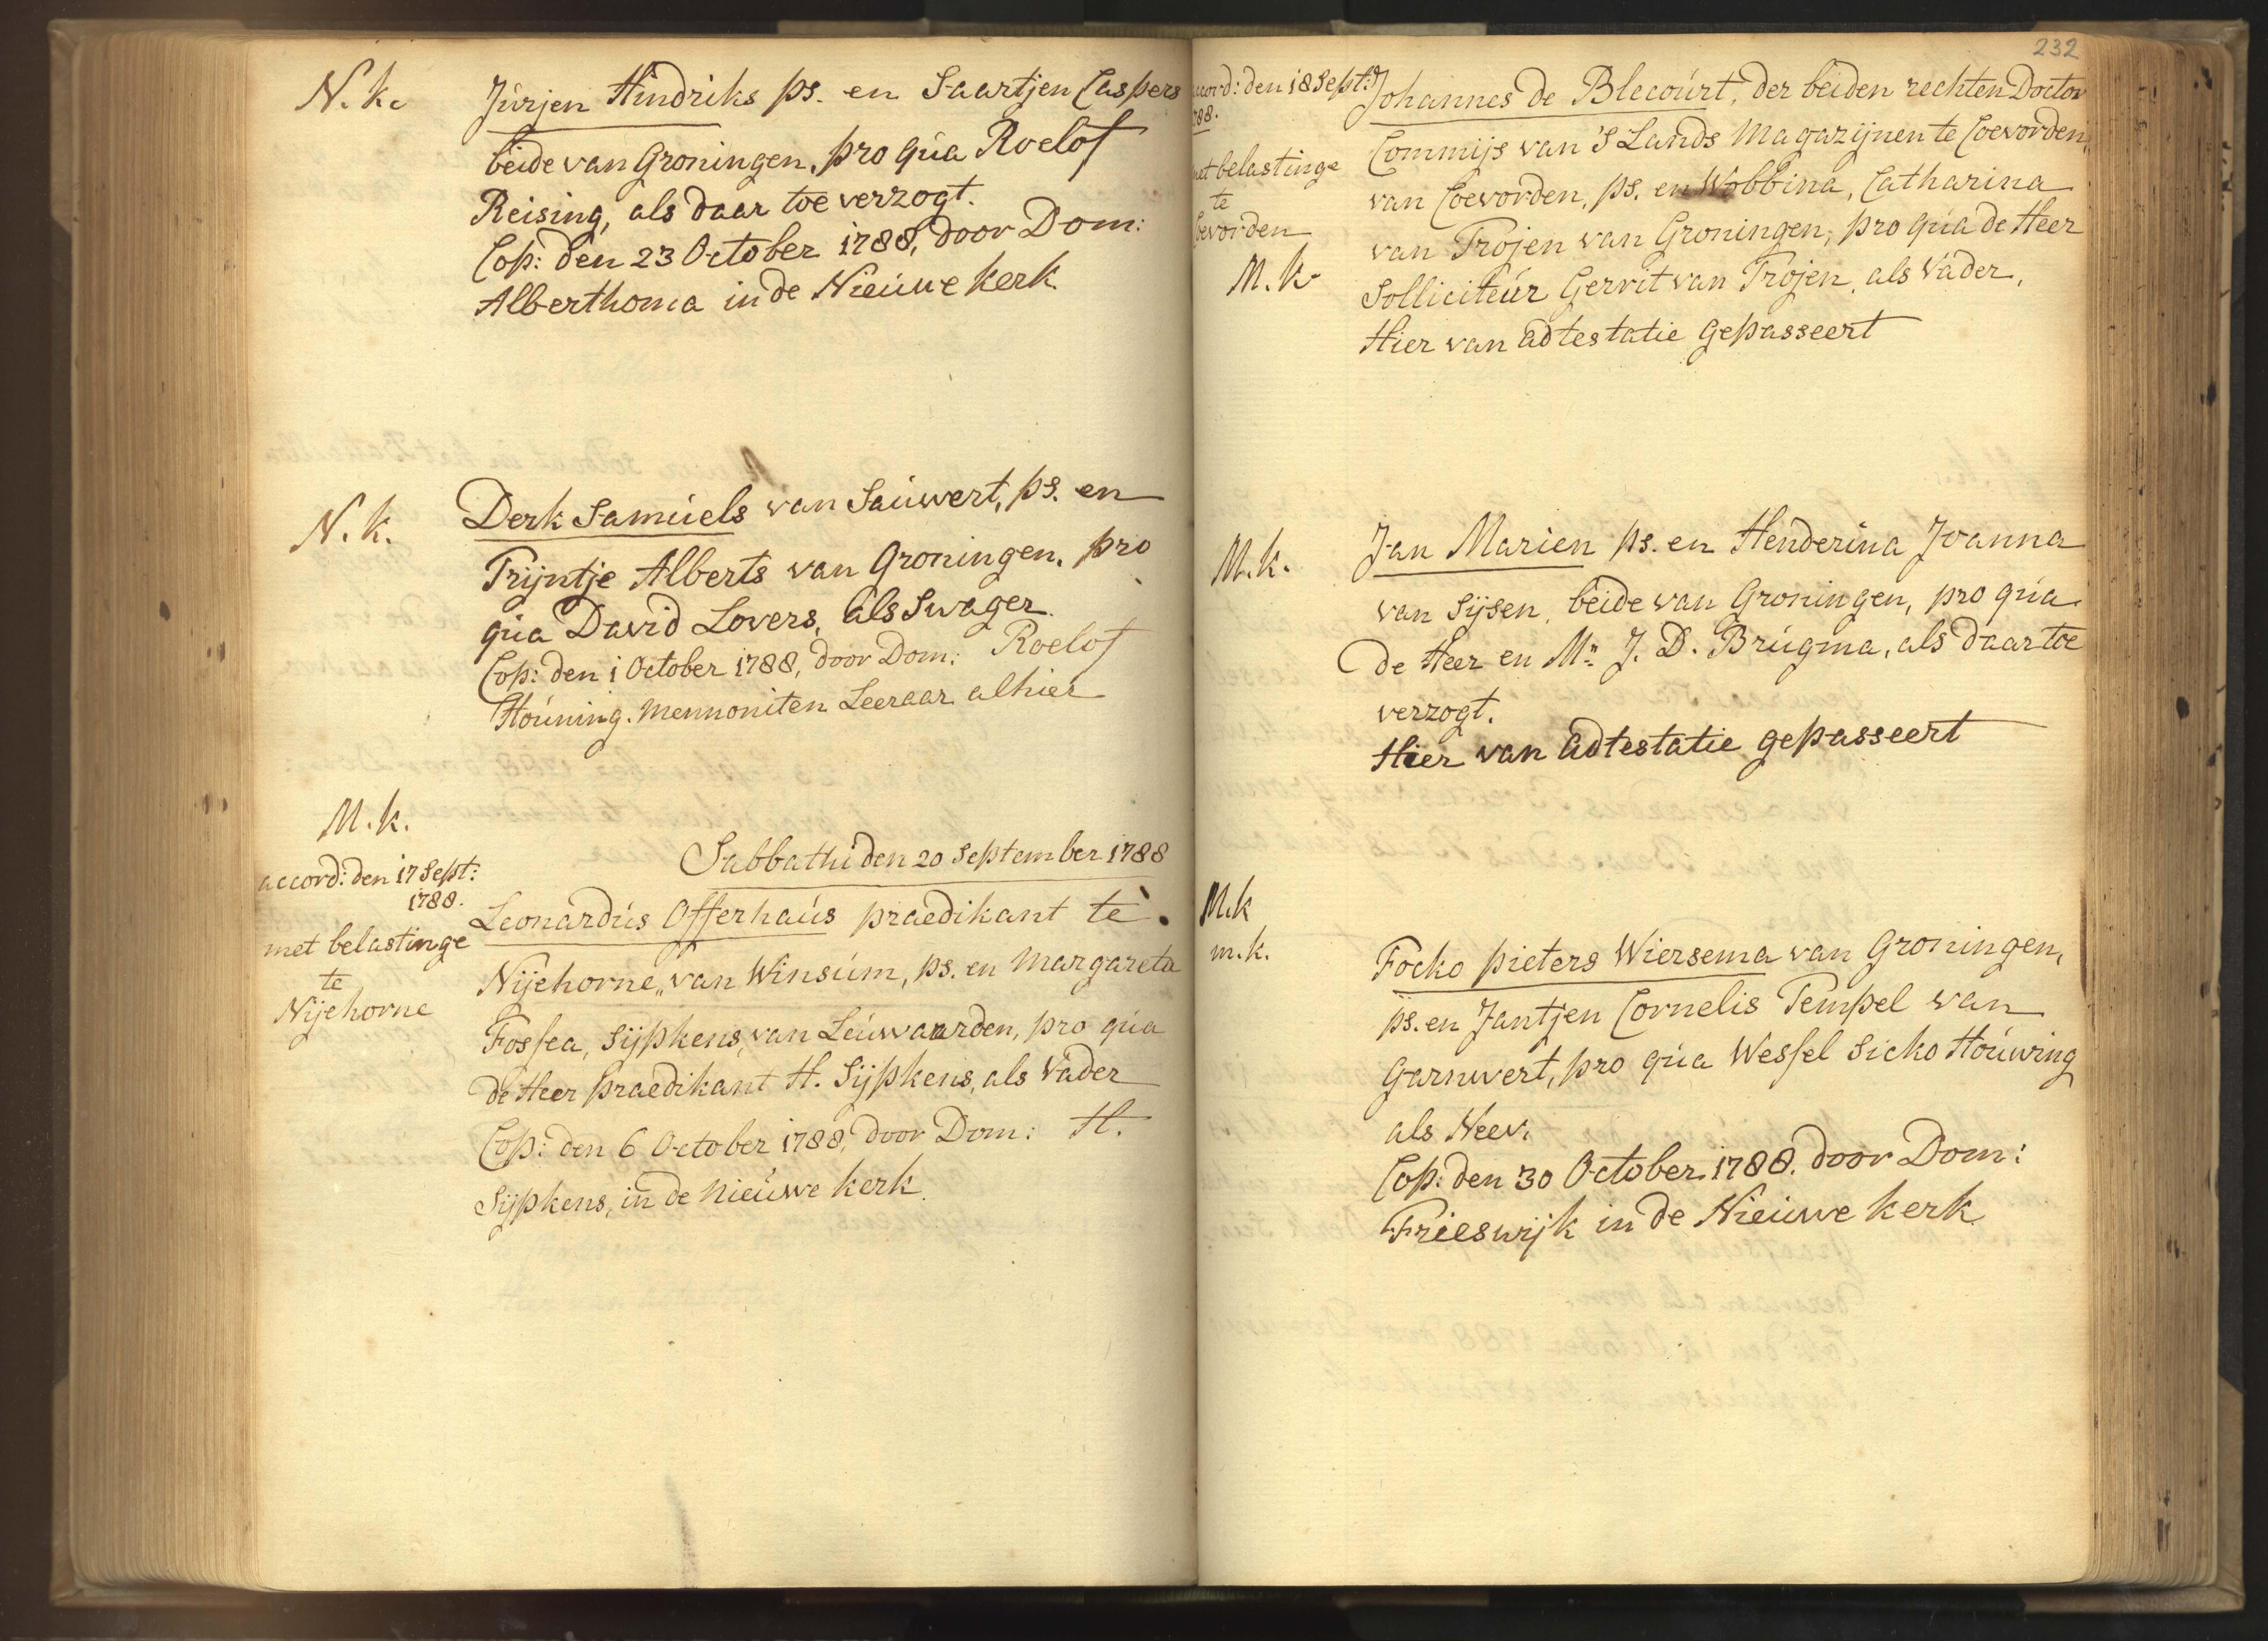 N. k.
Jurjen Hindriks ps. en Saartjen Caspers
beide van Groningen, pro qua Roelof
Reising, als daar toe verzogt.
Cop: den 23 October 1788, door Dom:
Alberthoma in de Nieuwe kerk
N. k.
Derk Samuels van Sauwert, ps. en
Trijntje Alberts van Groningen, pro
qua David Lovers, als Swager.
Cop: den 1 October 1788, door Dom: Roelof
Houning. Mennoniten Leeraar alhier
M. k.
Sabbathi den 20 September 1788
accord: den 17 Sept:
1788.
met belastinge
te
Nijehorne
Leonardus Offerhaus praedikant te
Nijehorne, van Winsum, ps. en Margareta
Fossea, Sijpkens, van Leuwaarden, pro qua
de Heer praedikant H. Sijpkens, als Vader
Cop: den 6 October 1788, door Dom: H.
Sijpkens, in de Nieuwe kerk.
232
ccord: den 18 Sept:
788.
met belastinge
te
Coevorden
M. k.
Johannes de Blecourt, der beiden rechten Doctor
Commijs van 's Lands Magazijnen te Coevorden,
van Coevorden, ps. en Wobbina, Catharina
van Trojen van Groningen, pro qua de Heer
Solliciteur Gerrit van Trojen, als Vader,
Hier van adtestatie gepasseert
M. k.
Jan Marien ps. en Henderina Joanna
van Sijsen, beide van Groningen, pro qua
de Heer en Mr. J. D. Brugma, als daar toe
verzogt.
Hier van adtestatie gepasseert
M. k
m. k.
Focko pieters Wiersema van Groningen,
ps. en Jantjen Cornelis Tempel van
Garnwert, pro qua Wessel Sicko Houwing
als Neev.
Cop: den 30 October 1788. door Dom:
Frieswijk in de Nieuwe kerk